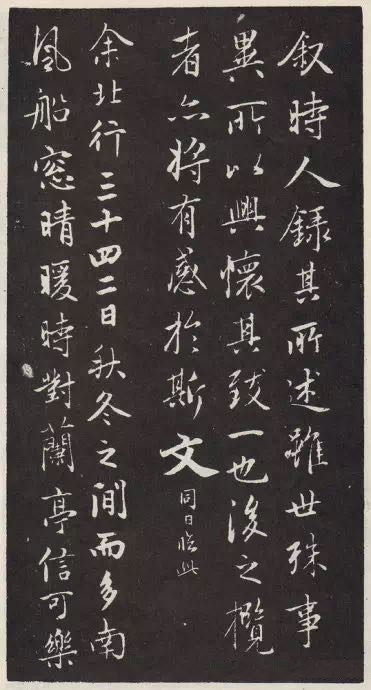 叙時人録其所述雖世殊事
異所以興懷其致一也後之攬
者亦将有感於斯文 同日臨此
余北行三十四二日秋冬之間而多南
風船窓晴暖時對蘭亭信可樂